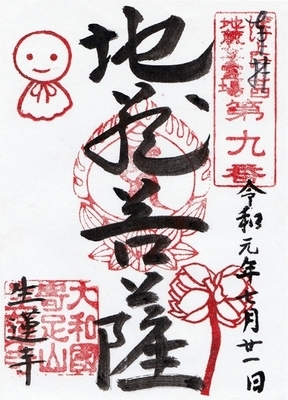 奉拝
霊場
第九番
令和元年七月廿一日
地蔵菩薩
大和國
寄足山
生蓮寺